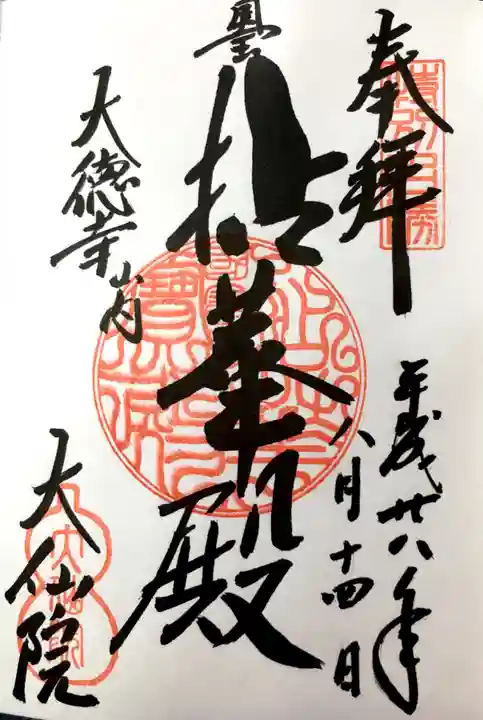 奉拝
特別名勝
平成廿八年
八月十四日
拈華殿
大徳寺山内
大仙院